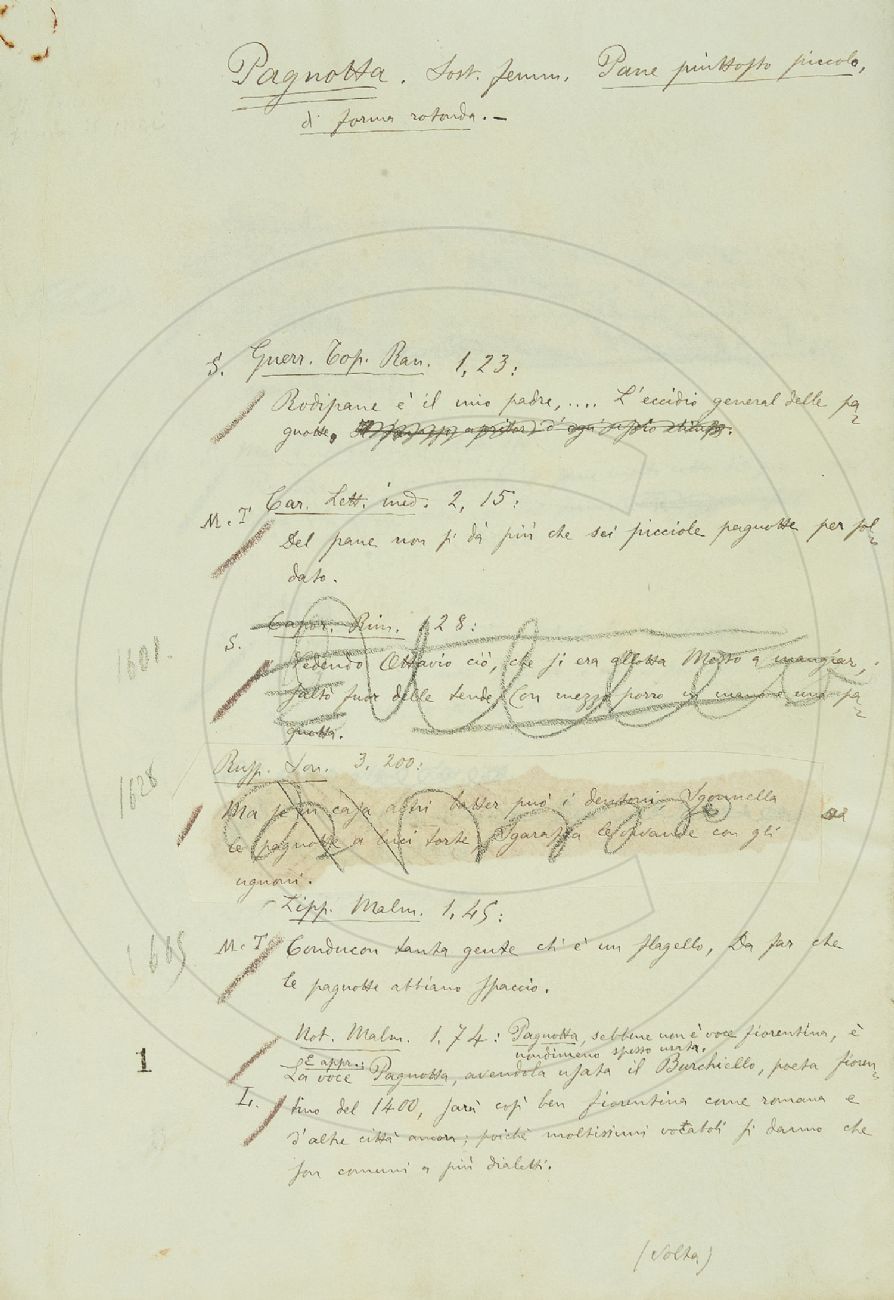 Pagnotta. Sost. femm. Pane piuttosto piccolo,
di forma rotonda. —
S. Guerr. Top. Ran. 1, 23:
Rodipane è il mio padre, .... L'eccidio general delle pa-
gnotte,
M. T. Car. Lett. ined. 2, 15:
Del pane non si dà più che sei picciole pagnotte per sol-
dato.
S. Capor. Rim. 128:
1601.
Vedendo Ottavio ciò, che si era allotta Messo a mangiar,
Saltò fuor delle tende Con mezzo porro in mano e una pa-
gnotta.
Rusp. Son. 3. 200:
1628
Ma se in casa altri batter può i dentoni, Sgonnella
le pagnotte a luci torte, Sgaraffa le vivande con gli
ugnoni.
Lipp. Malm. 1, 45:
1665
M. T. Conducon tanta gente ch'è un flagello, Da far che
le pagnotte abbiano spaccio.
Not. Malm. 1. 74: Pagnotta, sebbene non è voce fiorentina, è
nondimeno spesso usata.
E appr.:
1
La voce Pagnotta, avendola usata il Burchiello, poeta fioren-
L. tino del 1400, sarà così ben fiorentina come romana e
d'altre città ancora; poichè moltissimi vocaboli si danno che
son comuni a più dialetti.
(Volta)